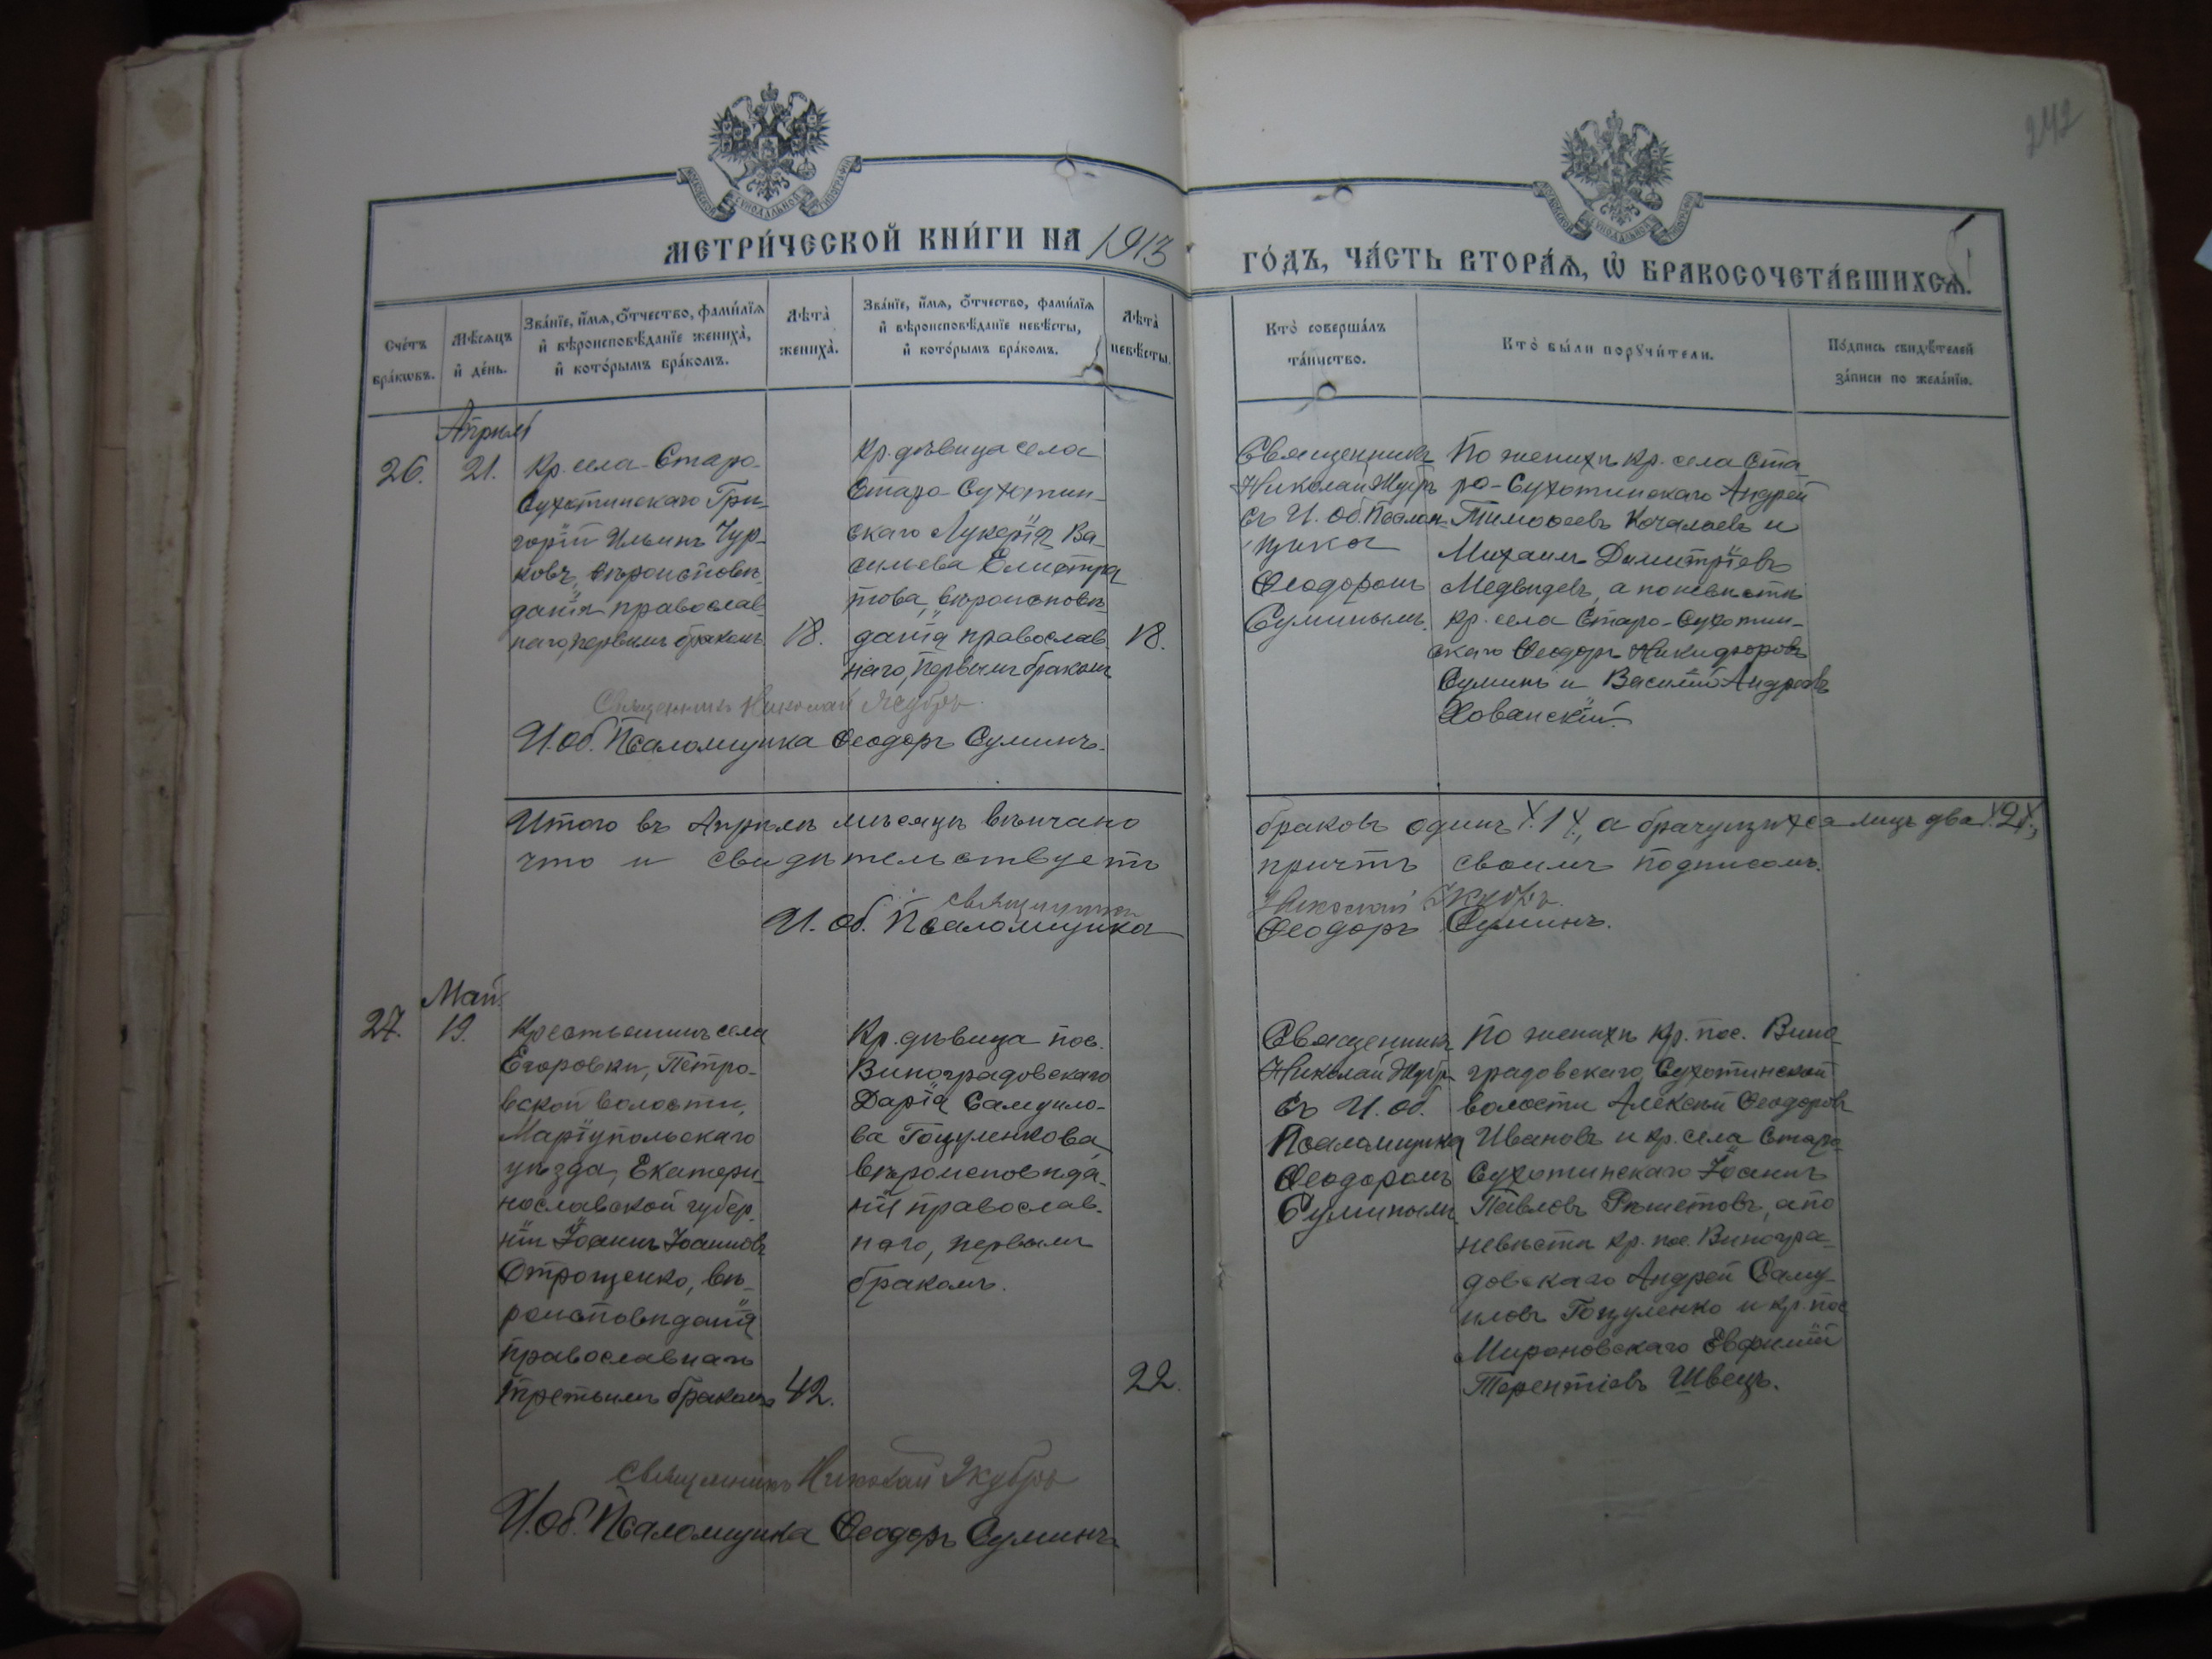 242
МЕТРИ́ЧЕСКОЙ КНИ́ГИ НА 1913
ГО́ДЪ, ЧА́СТЬ ВТОРА́Ѧ, Ѡ҆ БРАКОСОЧЕТА́ВШИХСѦ.
Сче́тъ бра́кѡвъ.
Мѣ́сѧцъ и҆ де́нь.
Зва́нїе, и҆́мѧ, ѻ҆́тчество, фами́лїѧ
и҆ вѣроисповѣ́данїе жениха̀,
и҆ кото́рымъ бра́комъ.
Лѣта̀ жениха̀.
Зва́нїе, и҆́мѧ, ѻ҆́тчество, фами́лїѧ
и҆ вѣроисповѣ́данїе невѣ́сты,
и҆ кото́рымъ бра́комъ.
Лѣта̀ невѣ́сты.
Кто̀ соверша́лъ та́инство.
Кто̀ бы́ли порꙋчи́тели.
По́дпись свидѣ́телей
за́писи по жела́нїю.
Апрѣль
26.
21.
Кр. села Старо-
Сухотинскаго Гри-
горій Ильинъ Чур-
ковъ, вѣроисповѣ-
данія православ-
наго, первымъ бракомъ.
18.
Кр. дѣвица села
Старо-Сухотин-
скаго Лукерія Ва-
сильева Елистра
това, вѣроисповѣ-
данія православ.
наго, первымъ бракомъ
18.
Священникъ
Николай
съ И. об. Псалом-
щика
Ѳеодоромъ
Суминымъ.
По женихѣ кр. села Ста
ро-Сухотинскаго Андрей
Тимоѳеевъ Качалаевъ и
Михаилъ Димитріевъ
Медвидевъ, а по невѣстѣ
кр. села Старо-Сухотин-
скаго Ѳеодоръ Никифоровъ
Суминъ и Василій Андреевъ
Хованскій.
Священникъ Николай Якубръ.
И. об. Псаломщика Ѳеодоръ Суминъ.
Итого въ Апрѣлѣ мѣсяцѣ вѣнчано
браковъ одинъ /.1./, а брачущихся лицъ два /.2./,
что и свидѣтельствуетъ
причтъ своимъ подписомъ.
Священникъ Николай Якубръ.
И. об. Псаломщика Ѳеодоръ Суминъ.
Май.
27.
19.
Крестьянинъ села
Егоровки, Петро-
вской волости,
Маріупольскаго
уѣзда, Екатери-
нославской губер-
ніи Іоаннъ Іоанновъ
Отрощенко, вѣ-
роисповѣданія
православнаго
третьимъ бракомъ
42.
Кр. дѣвица пос.
Виноградовскаго
Дарія Самуило-
ва Гоцуленкова
вѣроисповѣда-
нія православ-
наго, первымъ
бракомъ.
22.
Священникъ
Николай
съ И. об.
Псаломщика
Ѳеодоромъ
Суминымъ.
По женихѣ кр. пос. Вино-
градовскаго, Сухотинской
волости Алексѣй Ѳеодоровъ
Ивановъ и кр. села Старо-
Сухотинскаго Іоаннъ
Павловъ Рѣшетовъ, а по
невѣстѣ кр. пос. Виногра-
довскаго Андрей Саму-
иловъ Гоцуленко и кр. пос
Мироновскаго Евфимій
Терентіевъ Швецъ.
Священникъ Николай Якубръ
И. об. Псаломщика Ѳеодоръ Суминъ